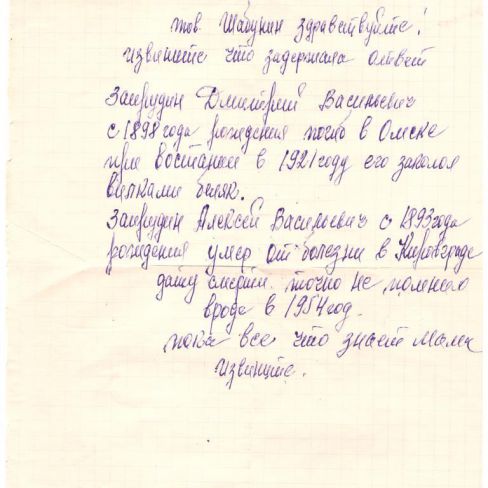 тов. Шабунин здравствуйте!
извините что задержала ответ
Загрудин Дмитрий Васильевич
с 1898 года рождения погиб в Омске
при востании в 1921 году его закололи
вилками
Загрудин Алексей Васильевич с 1893 года
рождения умер от болезни в Кировграде
дату смерти точно не помню
вроде в 1954 год.
пока все что знает мама
извините.